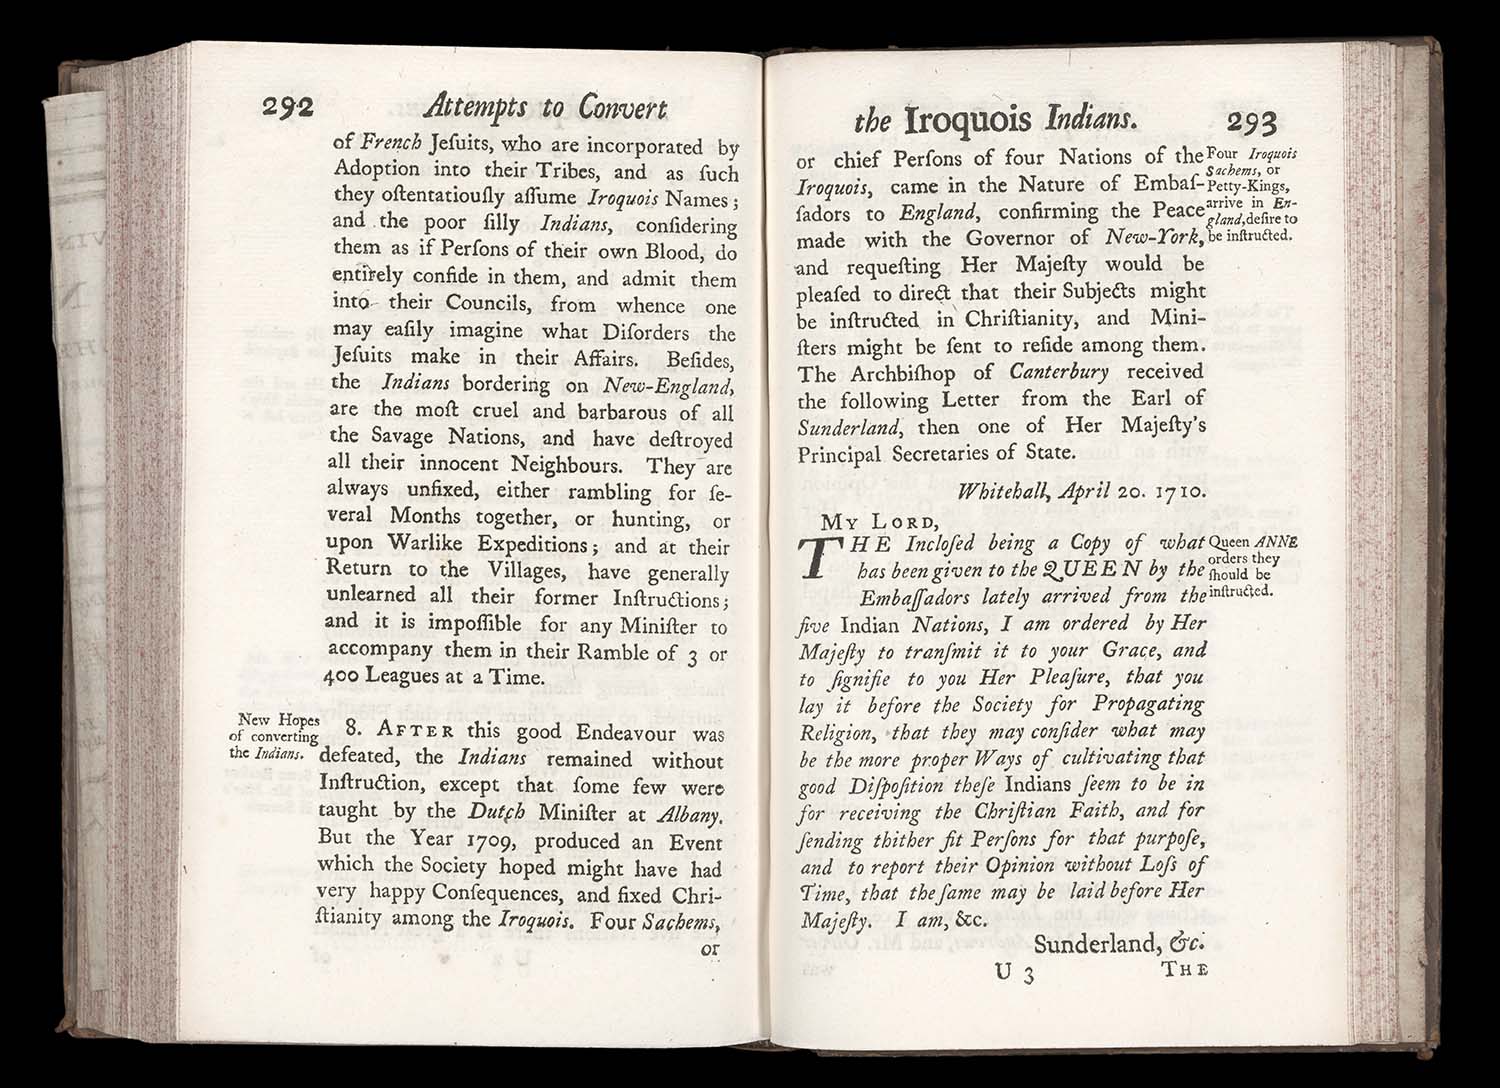 292 Attempts to Convert
of French Jeſuits, who are incorporated by
Adoption into their Tribes, and as ſuch
they oſtentatiouſly aſſume Iroquois Names;
and the poor ſilly Indians, conſidering
them as if Perſons of their own Blood, do
entirely confide in them, and admit them
into their Councils, from whence one
may eaſily imagine what Diſorders the
Jeſuits make in their Affairs. Beſides,
the Indians bordering on New-England,
are the moſt cruel and barbarous of all
the Savage Nations, and have deſtroyed
all their innocent Neighbours. They are
always unfixed, either rambling for ſe-
veral Months together, or hunting, or
upon Warlike Expeditions; and at their
Return to the Villages, have generally
unlearned all their former Inſtructions;
and it is impoſſible for any Miniſter to
accompany them in their Ramble of 3 or
400 Leagues at a Time.
New Hopes
of converting
the Indians.
8. AFTER this good Endeavour was
defeated, the Indians remained without
Inſtruction, except that ſome few were
taught by the Dutch Miniſter at Albany.
But the Year 1709, produced an Event
which the Society hoped might have had
very happy Conſequences, and fixed Chri-
ſtianity among the Iroquois. Four Sachems,
or
the Iroquois Indians. 293
or chief Perſons of four Nations of the
Iroquois, came in the Nature of Embaſ-
ſadors to England, confirming the Peace
made with the Governor of New-York,
and requeſting Her Majeſty would be
pleaſed to direct that their Subjects might
be inſtructed in Chriſtianity, and Mini-
ſters might be ſent to reſide among them.
The Archbiſhop of Canterbury received
the following Letter from the Earl of
Sunderland, then one of Her Majeſty's
Principal Secretaries of State.
Four Iroquois
Sachems, or
Petty-Kings,
arrive in En-
gland, deſire to
be inſtructed.
Whitehall, April 20. 1710.
MY LORD,
THE Incloſed being a Copy of what
has been given to the QUEEN by the
Embaſſadors lately arrived from the
five Indian Nations, I am ordered by Her
Majeſty to tranſmit it to your Grace, and
to ſignifie to you Her Pleaſure, that you
lay it before the Society for Propagating
Religion, that they may conſider what may
be the more proper Ways of cultivating that
good Diſpoſition theſe Indians ſeem to be in
for receiving the Chriſtian Faith, and for
ſending thither fit Perſons for that purpoſe,
and to report their Opinion without Loſs of
Time, that the ſame may be laid before Her
Majeſty. I am, &c.
Queen ANNE
orders they
ſhould be
inſtructed.
Sunderland, &c.
U 3 THE